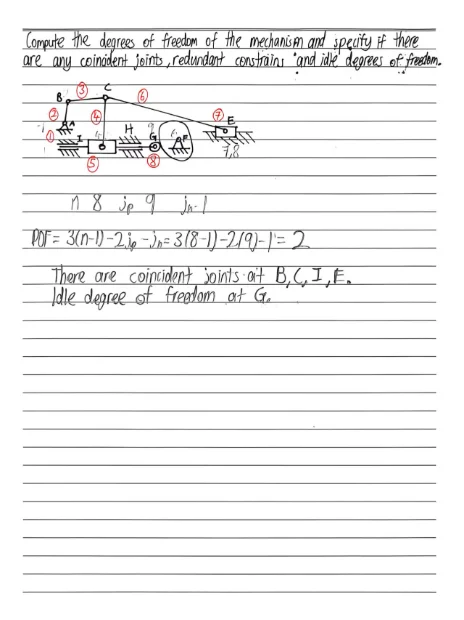 Compute the degrees of freedom of the mechanism and specify if there
are any coincident joints, redundant constrains and idle degrees of freedom.
③ C ⑥
B
② ④ ⑦ E
A
① I H G F
7,8
⑤ ⑧
n 8 jp 9 jh-1
DOF = 3(n-1)-2jp-jh=3(8-1)-2(9)-1=2
There are coincident joints at B, C, I, E.
Idle degree of freedom at G.